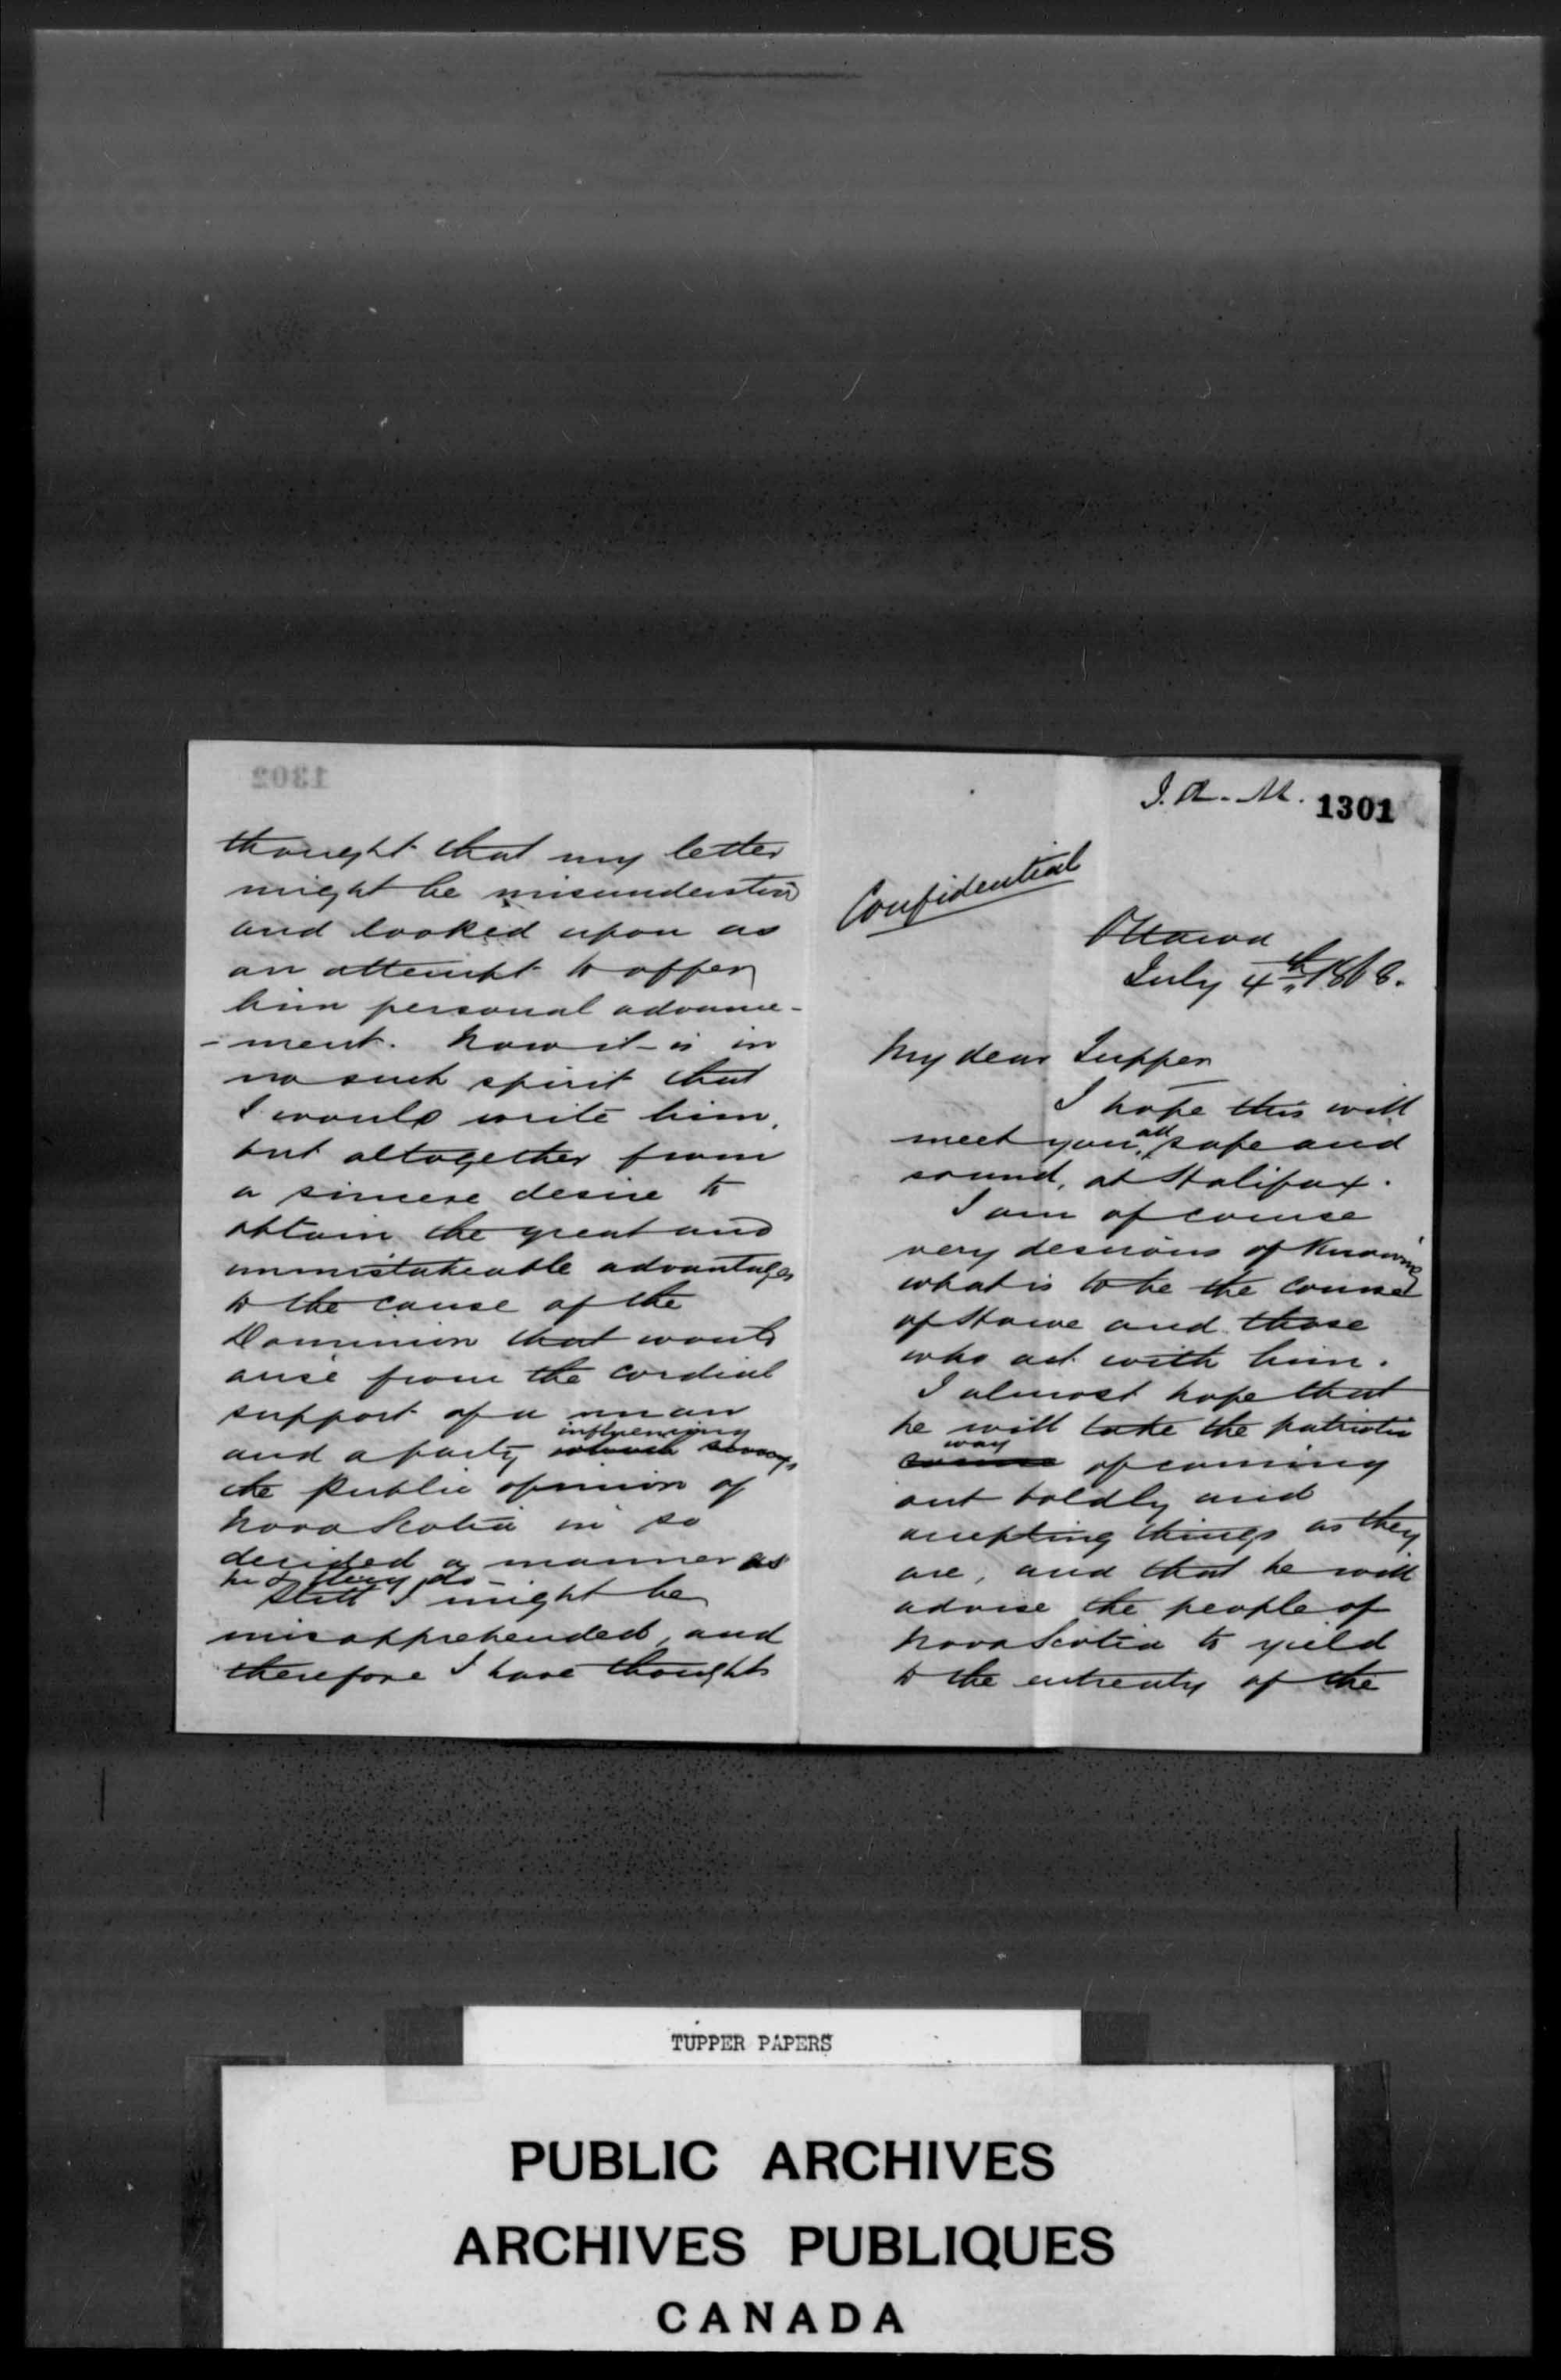 J.A.M. 1301
Confidential
Ottawa
July 4th 1868.
My dear Tupper
I hope this will
meet you, all safe and
sound, at Halifax.
I am of course
very desirous of knowing
what is to be the course
of Howe and those
who act with him.
I almost hope that
he will take the patriotic
way
course of coming
out boldly and
accepting things as they
are, and that he will
advise the people of
Nova Scotia to yield
to the entreaty of the
1302
thought that my letter
might be misunderstood
and looked upon as
an attempt to offer
him personal advance-
-ment. Now it is in
no such spirit that
I would write him,
but altogether from
a sincere desire to
obtain the great and
unmistakeable advantages
to the cause of the
Dominion that would
arise from the cordial
support of a man
influencing
and a party which sways
the public opinion of
Nova Scotia in so
decided a manner as
he & they do -
Still I might be
misapprehended, and
therefore I have thought
TUPPER PAPERS
PUBLIC ARCHIVES
ARCHIVES PUBLIQUES
CANADA